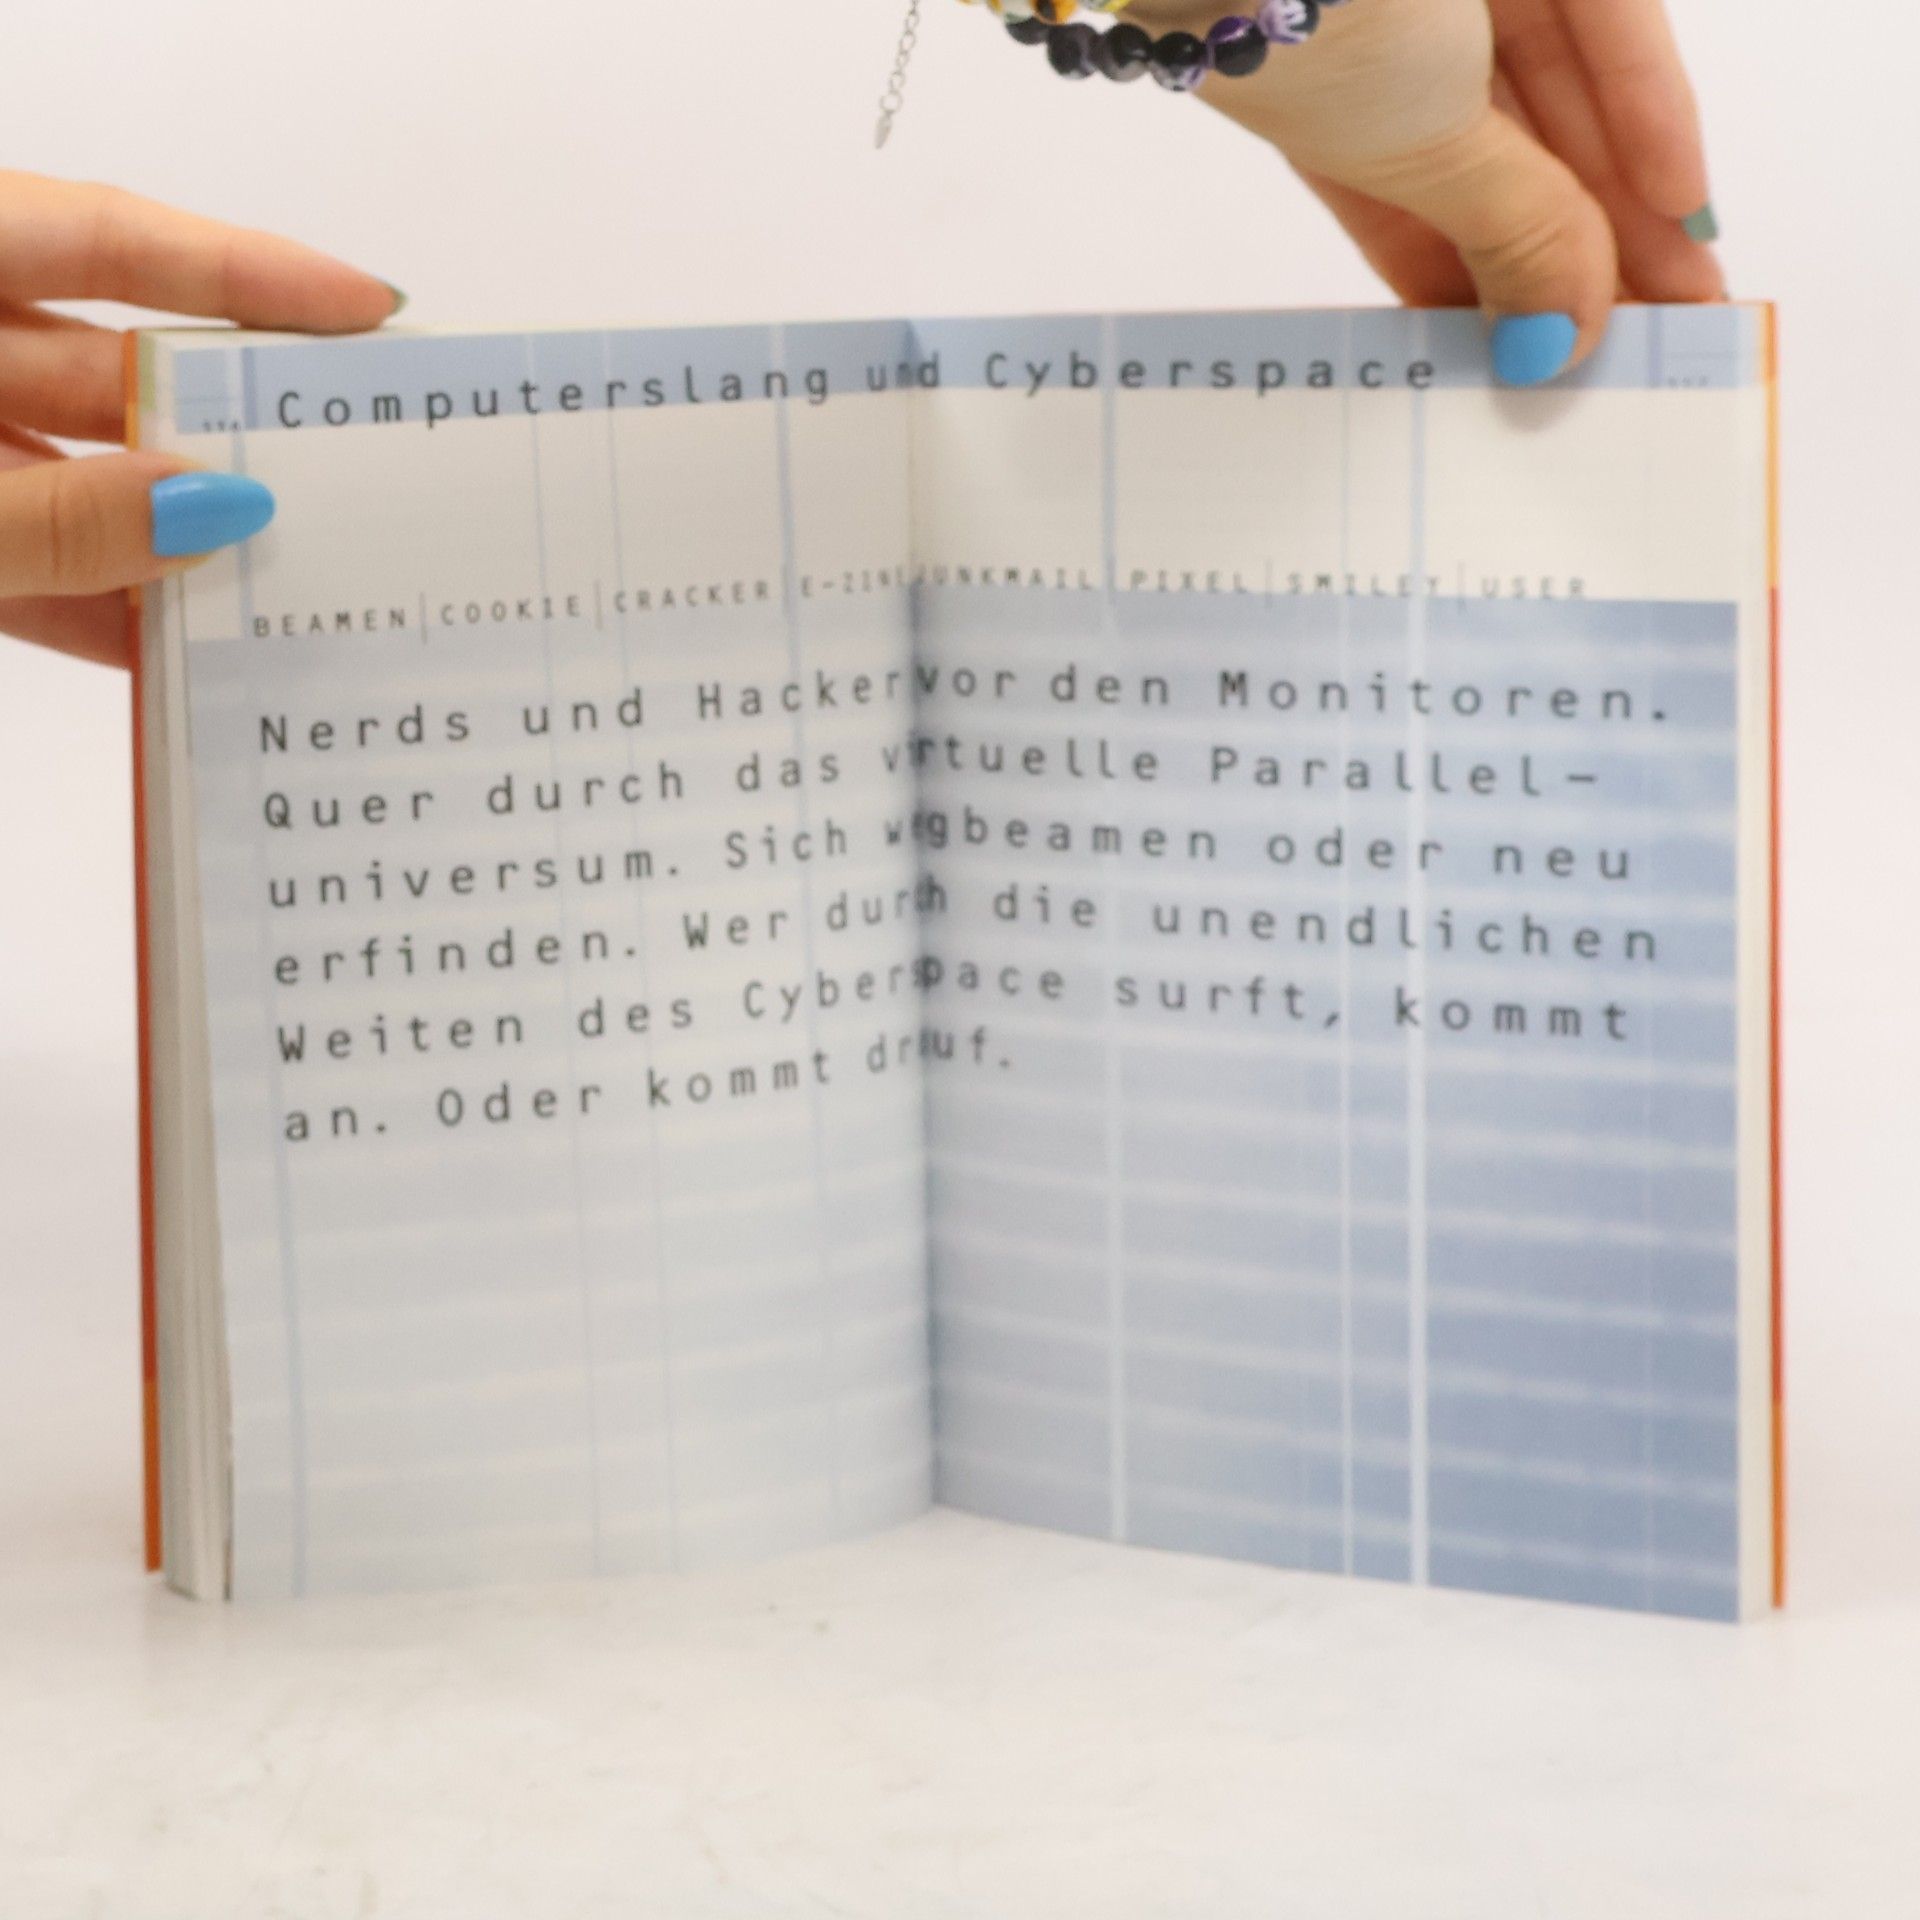 ... Computerslang und Cyberspace ...
BEAMEN | COOKIE | CRACKER | E-ZINE JUNKMAIL | PIXEL | SMILEY | USER
Nerds und Hacker vor den Monitoren.
Quer durch das virtuelle Parallel-
universum. Sich wegbeamen oder neu
erfinden. Wer durch die unendlichen
Weiten des Cyberspace surft, kommt
an. Oder kommt drauf.